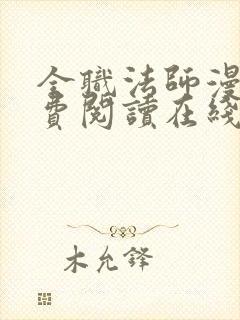 全職法師漫
費閱讀在綫
木允鋒